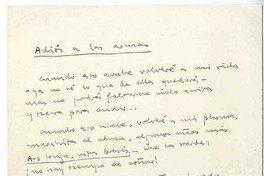 Adiós a las armas
Cuando esto acabe volveré a mi vida
- ya no sé lo que de ella quedará -
mas no podrá faltarme cielo arriba
y tierra para andar...
Cuando esto acabe, volveré a mi pluma,
marchita el alma, algunos años más.
Ars longa, vita brevis... Cae la tarde;
¡no hay tiempo de soñar!